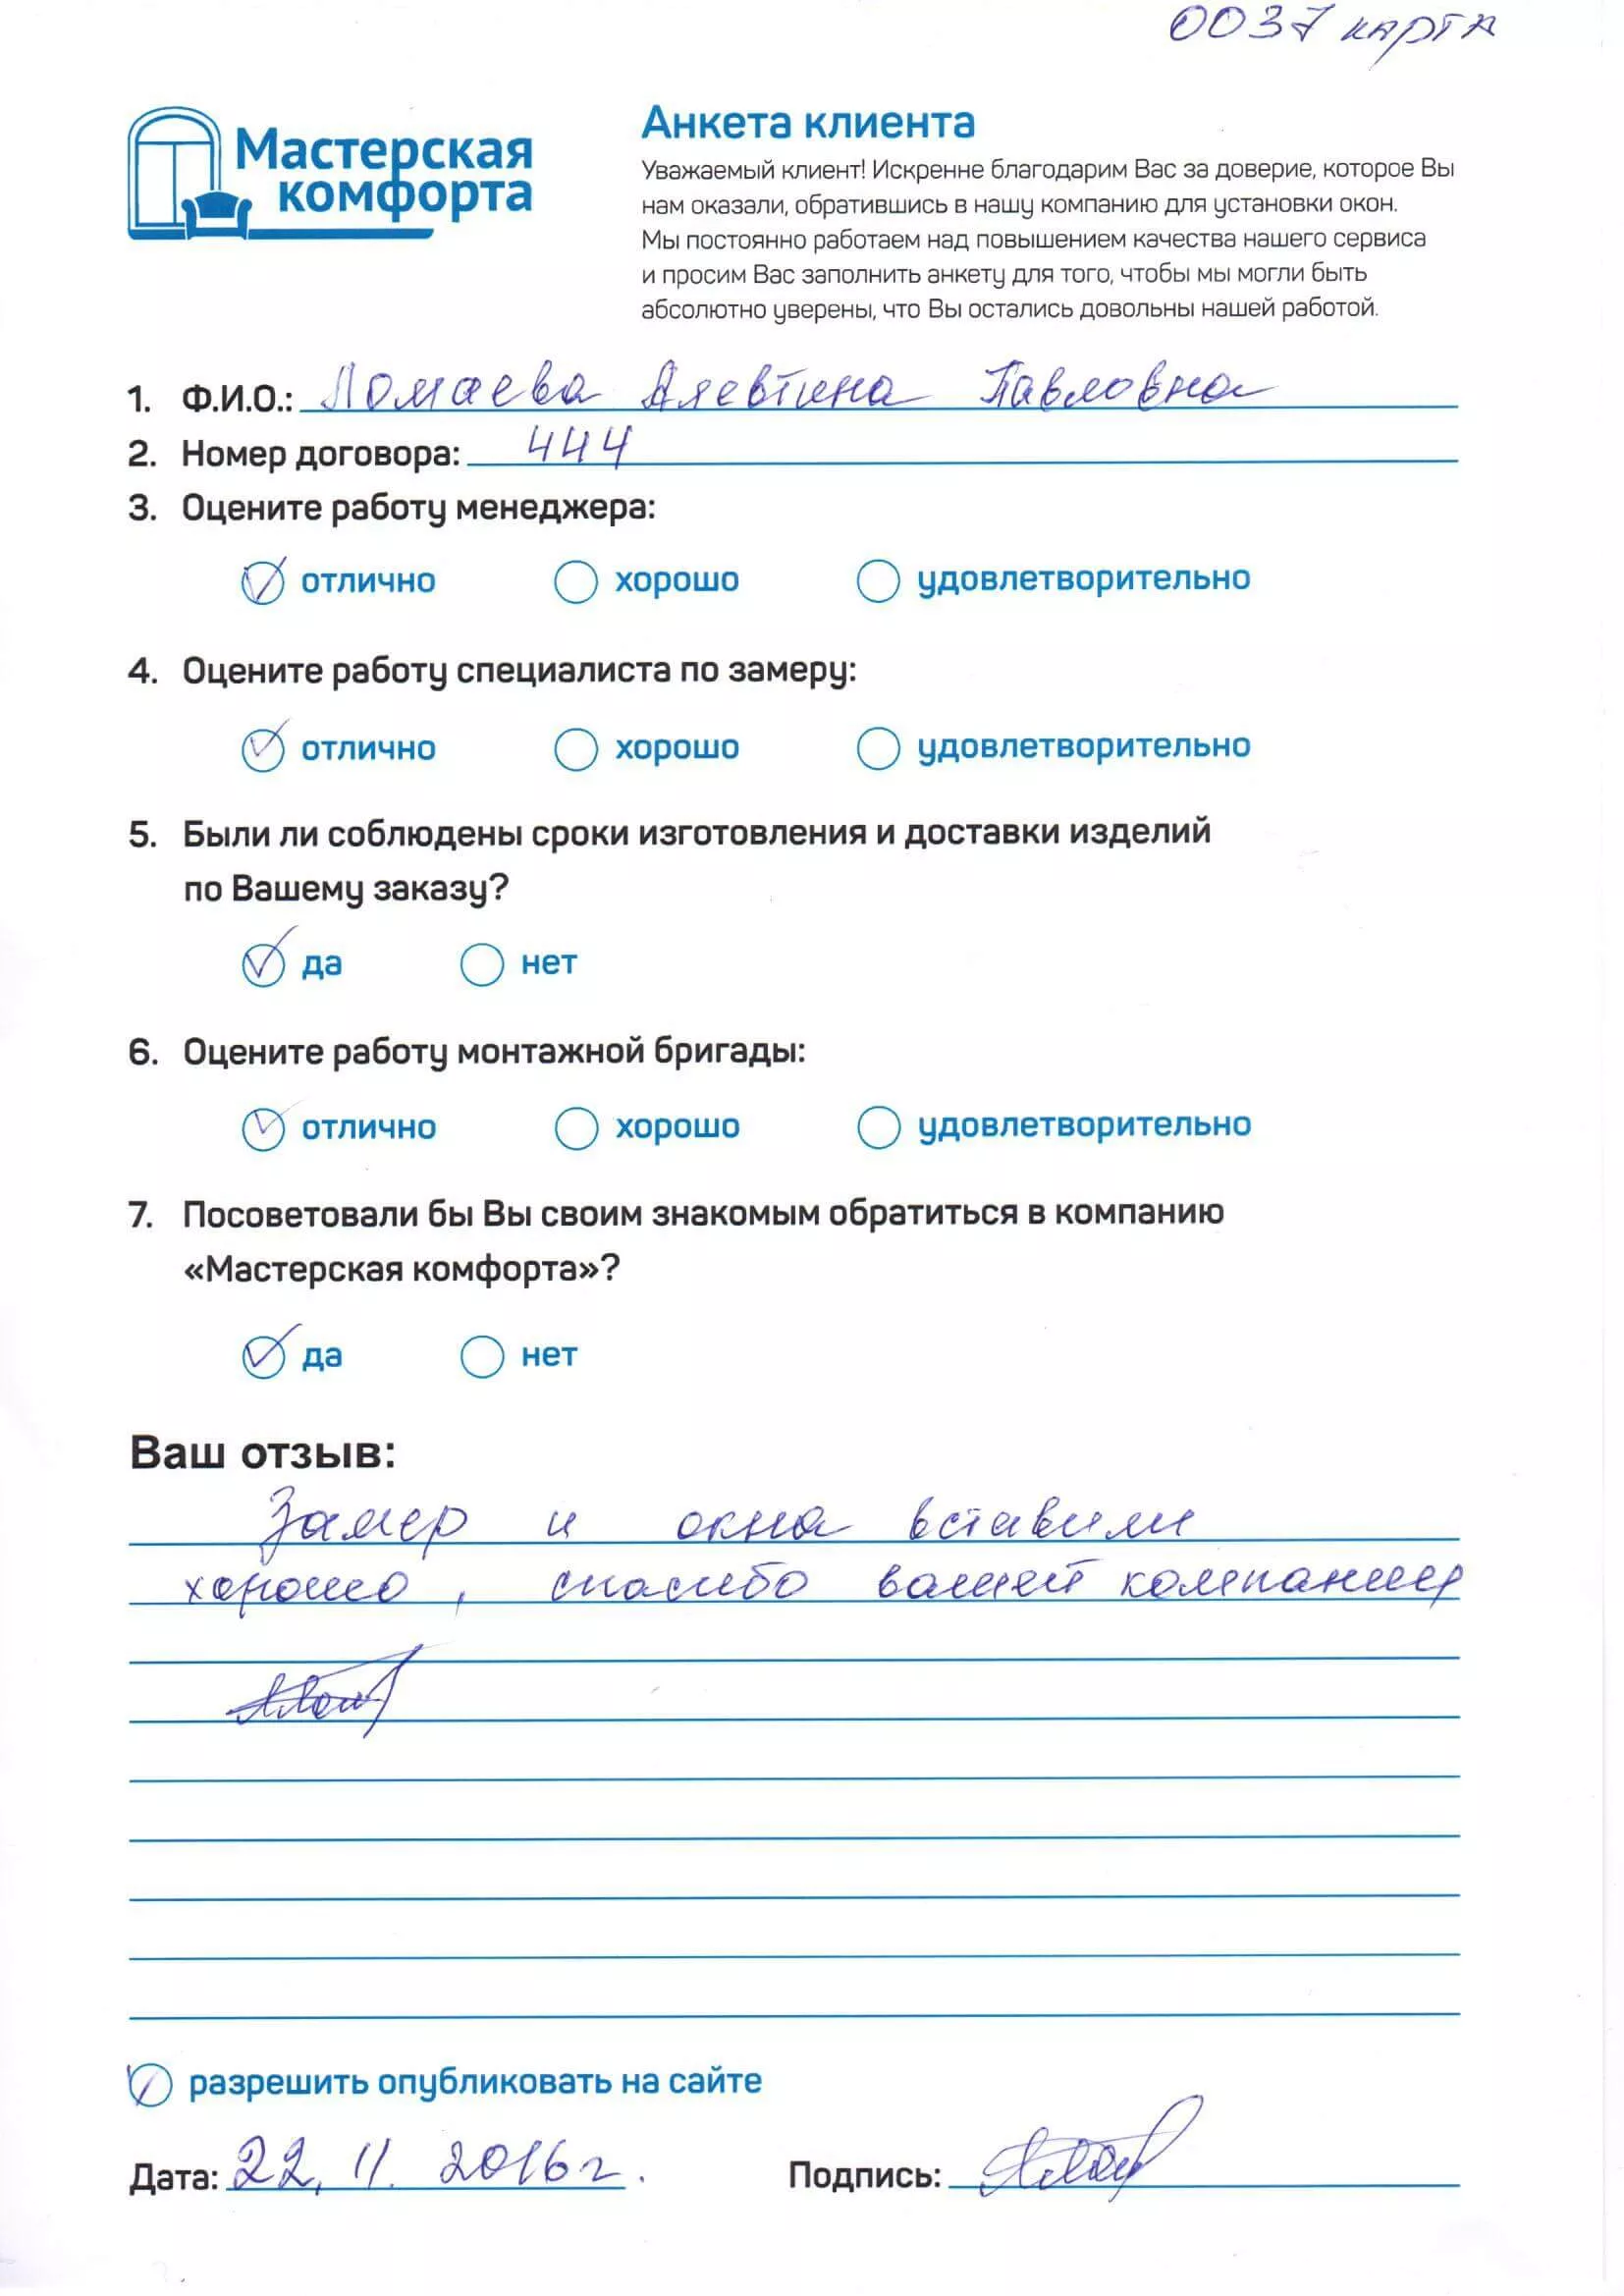 0037 карта
Мастерская
комфорта
Анкета клиента
Уважаемый клиент! Искренне благодарим Вас за доверие, которое Вы
нам оказали, обратившись в нашу компанию для установки окон.
Мы постоянно работаем над повышением качества нашего сервиса
и просим Вас заполнить анкету для того, чтобы мы могли быть
абсолютно уверены, что Вы остались довольны нашей работой.
1. Ф.И.О.: Ломаева Алевтина Павловна
2. Номер договора: 444
3. Оцените работу менеджера:
отлично хорошо удовлетворительно
4. Оцените работу специалиста по замеру:
отлично хорошо удовлетворительно
5. Были ли соблюдены сроки изготовления и доставки изделий
по Вашему заказу?
да нет
6. Оцените работу монтажной бригады:
отлично хорошо удовлетворительно
7. Посоветовали бы Вы своим знакомым обратиться в компанию
«Мастерская комфорта»?
да нет
Ваш отзыв:
Замер и окна вставили
хорошо, спасибо вашей компании
разрешить опубликовать на сайте
Дата: 22. 11. 2016 г. Подпись: